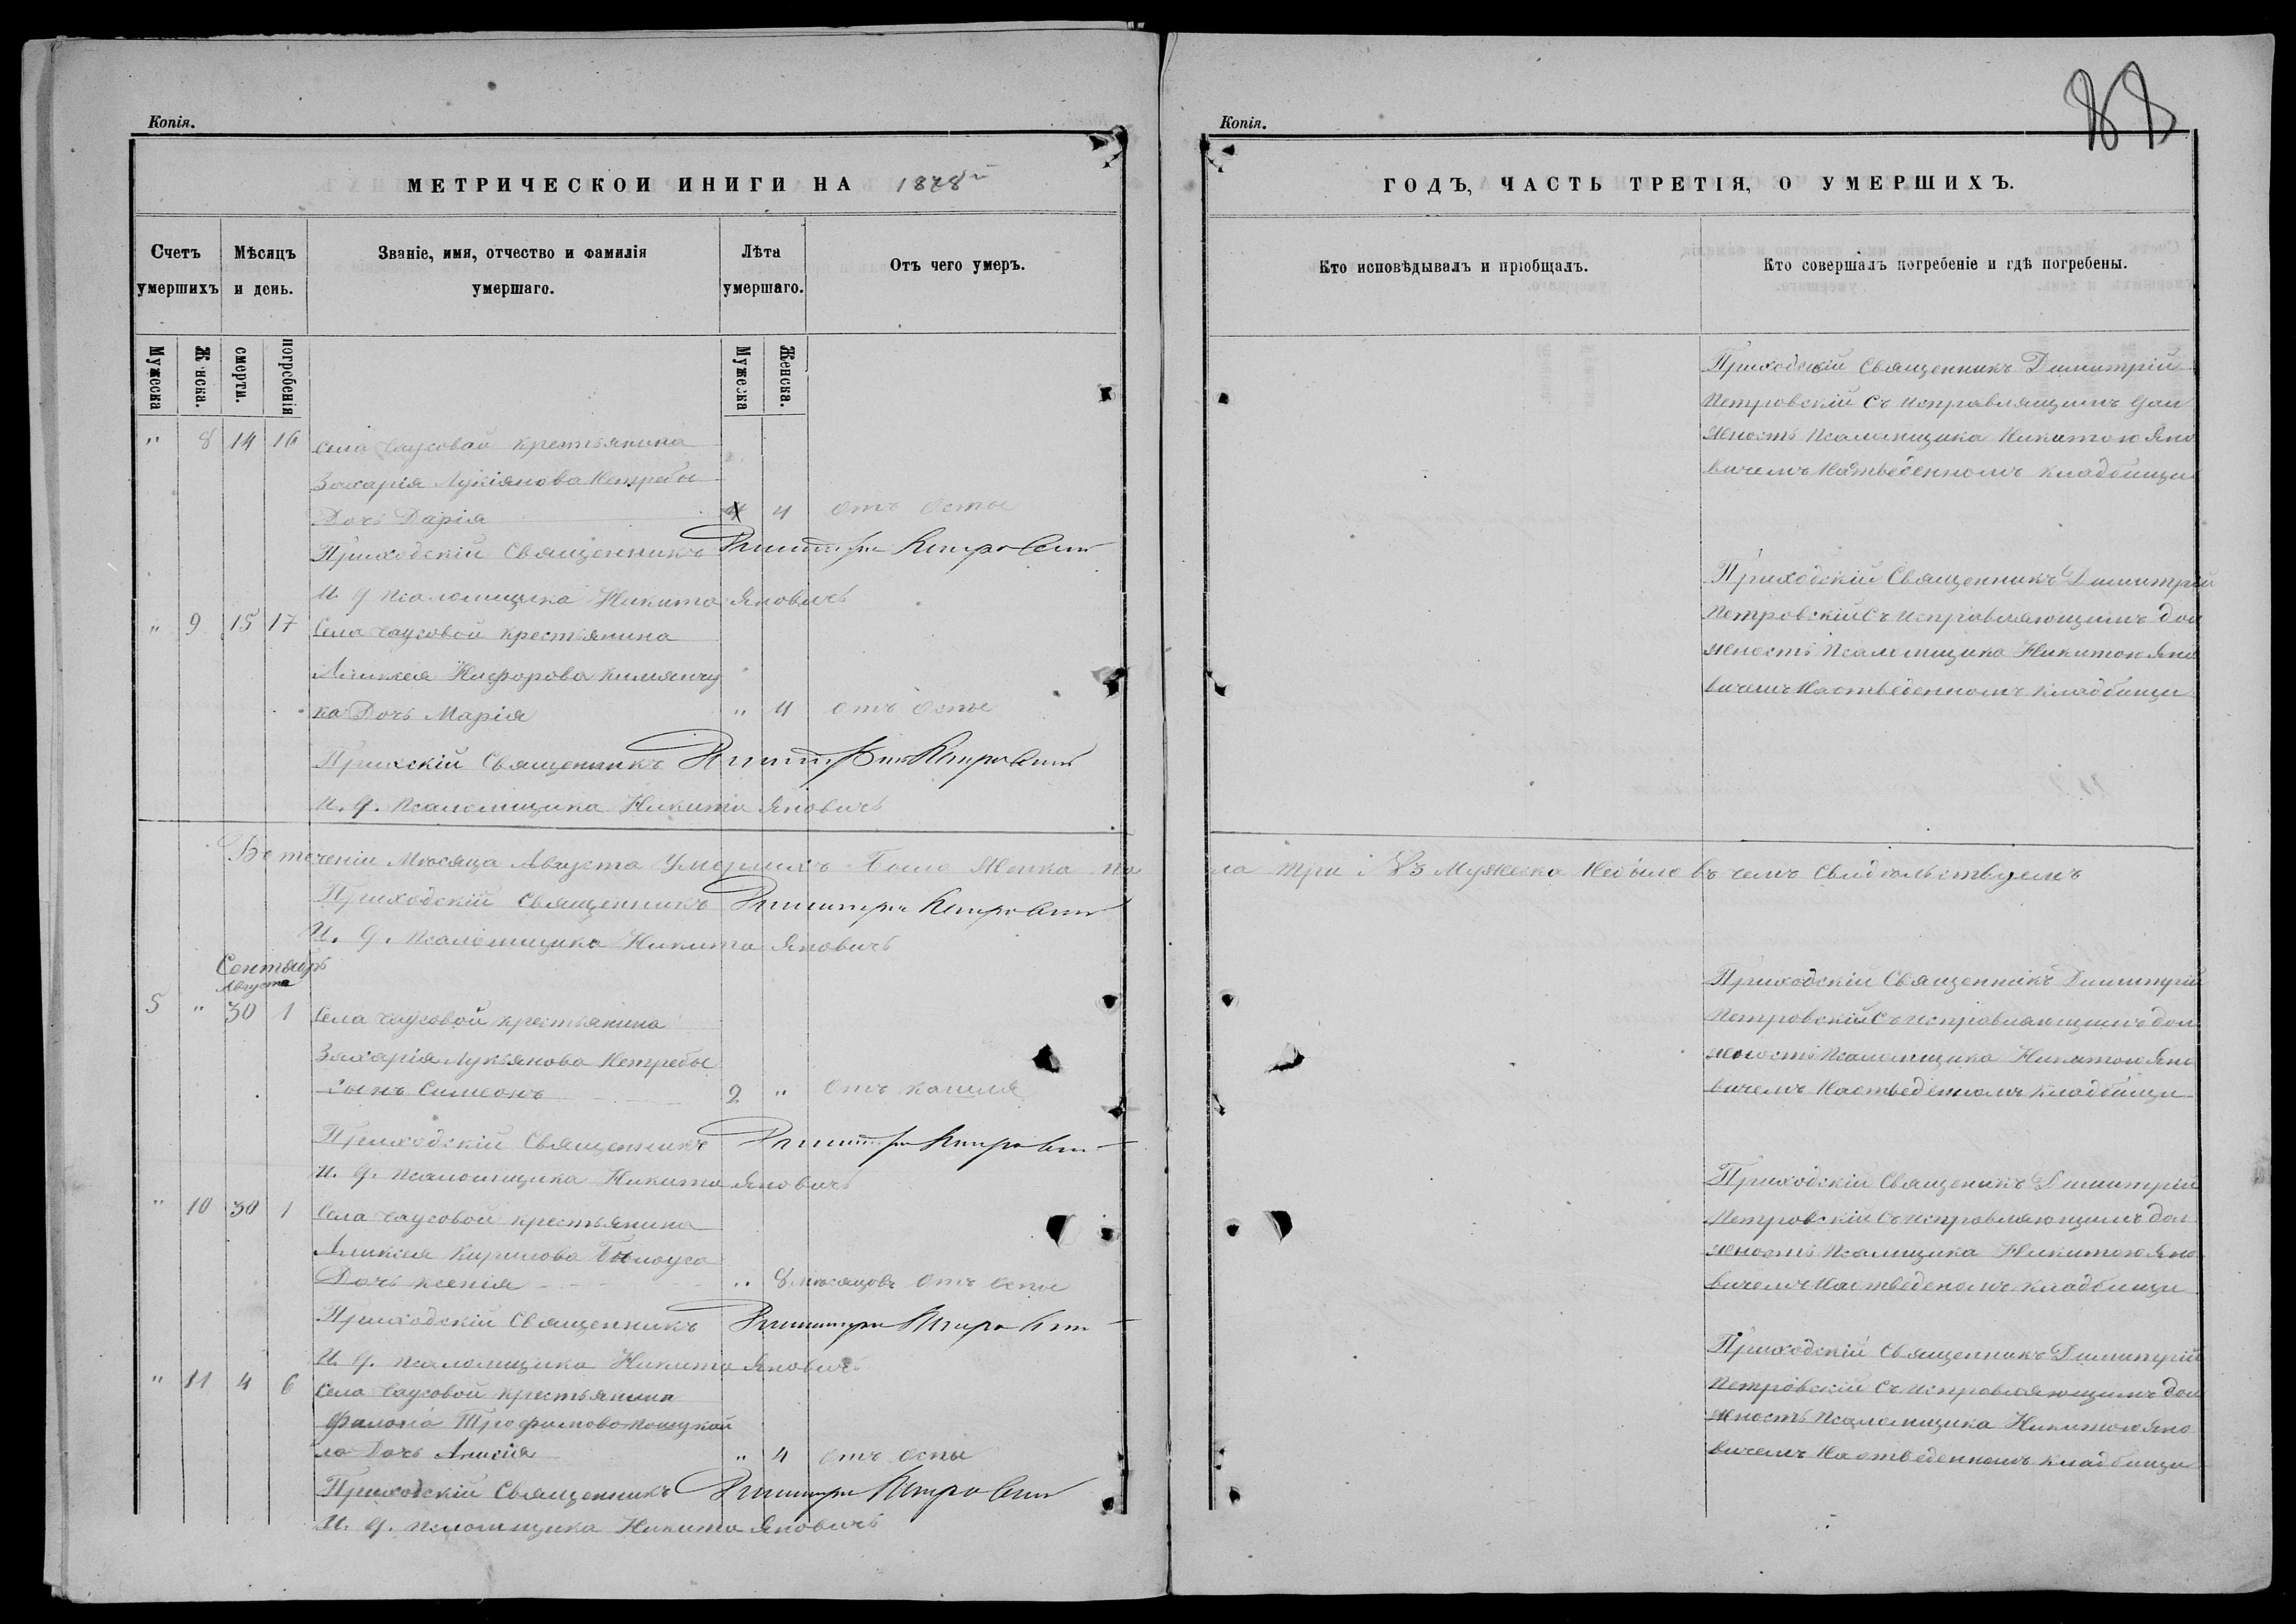 Копія.
МЕТРИЧЕСКОЙ ИНИГИ НА 1878й
Счетъ умершихъ
Мѣсяцъ и день.
Званіе, имя, отчество и фамилія умершаго.
Лѣта умершаго.
Отъ чего умеръ.
Мужеска
Женска.
смерти.
погребенія
Мужеска
Женска.
" 8 14 16 Села Чаусовой крестьянина
Захарія Лукіянова Нетребы
Дочь Дарія 4 отъ Осты
Приходскій Священникъ Димитрій Петровскій
И. д. псаломщика Никита Яновичъ
" 9 15 17 Села Чаусовой крестьянина
Аликѣя Никфорова Кимянчу
ка Дочь Марія " 4 отъ Оспы
Прихскій Священникъ Димитрій Петровскій
И. д. псаломщика Никита Яновичъ
Въ теченіи Мѣсяца Августа Умершихъ было Женка по
Приходскій Священникъ Димитрій Петровскій
И. д. псаломщика Никита Яновичъ
Сентябрь
Августа
5 " 30 1 Села Чаусовой крестьянина
Захарія Лукьянова Нетребы
сынъ Симеонъ 2 " отъ кашля
Приходскій Священникъ Димитрій Петровскій
И. д. псаломщика Никита Яновичъ
" 10 30 1 Села Чаусовой крестьянина
Аликсея Кирилова Билоуса
Дочь Ксенія " 8 мѣсяцовъ отъ оспы
Приходскій Священникъ Димитрій Петровскій
И. д. псаломщика Никита Яновичъ
" 11 4 6 Села Чаусовой крестьянина
Филона Трофимова
ла Дочь Анисія " 4 отъ оспы
Приходскій Священникъ Димитрій Петровскій
И. д. псломщика Никита Яновичъ
Копія.
ГОДЪ, ЧАСТЬ ТРЕТІЯ, О УМЕРШИХЪ.
Кто исповѣдывалъ и пріобщалъ.
Кто совершалъ погребеніе и гдѣ погребены.
Приходскій Священникъ Димитрій
Петровскій съ исправлящимъ дол
жность псаломщика Никитою Яно
вичемъ На отведенномъ кладбищи
Приходскій Священникъ Димитрій
Петровскій съ исправляющимъ дол
жность псаломщика Никитою Яно
вичемъ На отведенномъ кладбищи
ла три №3 Мужеска Небыло въ чемъ Свидѣльствуемъ
Приходскій Священникъ Димитрій
Петровскій съ исправляющимъ дол
жность псаломщика Никитою Яно
вичемъ На отведенномъ кладбищи
Приходскій Священикъ Димитрій
Петровскій съ исправляющимъ дол
жность псаломщика Никитою Яно
вичемъ На отведеномъ кладбищи
Приходскій Священникъ Димитрій
Петровскій съ исправляющимъ дол
жность псаломщика Никитою Яно
вичемъ На отведенномъ кладбищи